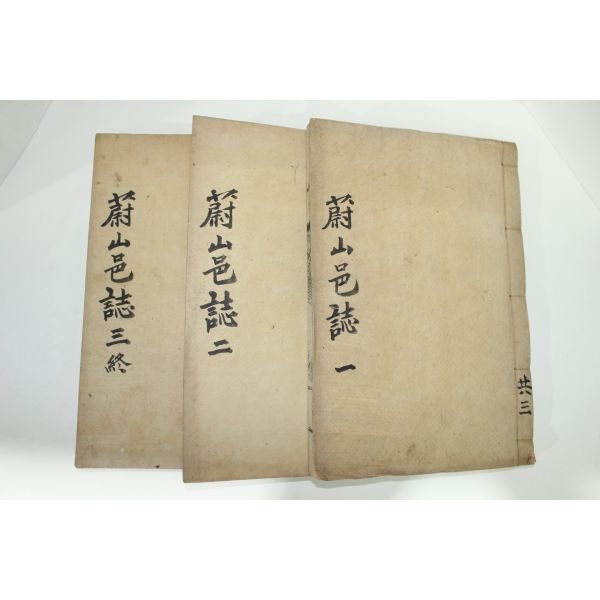 蔚山邑誌 一
共三
蔚山邑誌 二
蔚山邑誌 三終